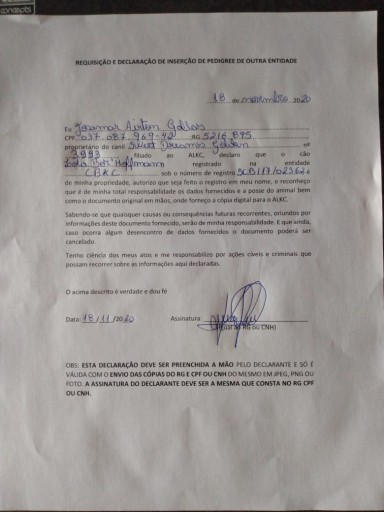 concepts
REQUISIÇÃO E DECLARAÇÃO DE INSERÇÃO DE PEDIGREE DE OUTRA ENTIDADE
18 de novembro 2020
Eu Josemar Airton
CPF 037.087.969-42 RG 5216895
proprietário do canil Sweet Dreams nº
3993 filiado ao ALKC, declaro que o cão
Hoffmann registrado na entidade
CBKC sob o número de registro SCB/17/02362 e
de minha propriedade, autorizo que seja feito o registro em meu nome, e reconheço
que é de minha total responsabilidade os dados fornecidos e a posse do animal bem
como o documento original em mãos, onde forneço a cópia digital para o ALKC.
Sabendo-se que quaisquer causas ou consequências futuras recorrentes, oriundos por
informações deste documento fornecido, serão de minha responsabilidade. E que ainda,
caso ocorra algum desencontro de dados fornecidos o documento poderá ser
cancelado.
Tenho ciência dos meus atos e me responsabilizo por ações cíveis e criminais que
possam recorrer sobre as informações aqui declaradas.
O acima descrito é verdade e dou fé
Data: 18/11/2020 Assinatura
(IGUAL AO RG OU CNH)
OBS: ESTA DECLARAÇÃO DEVE SER PREENCHIDA A MÃO PELO DECLARANTE E SÓ É
VÁLIDA COM O ENVIO DAS CÓPIAS DO RG E CPF OU CNH DO MESMO EM JPEG, PNG OU
FOTO. A ASSINATURA DO DECLARANTE DEVE SER A MESMA QUE CONSTA NO RG CPF
OU CNH.